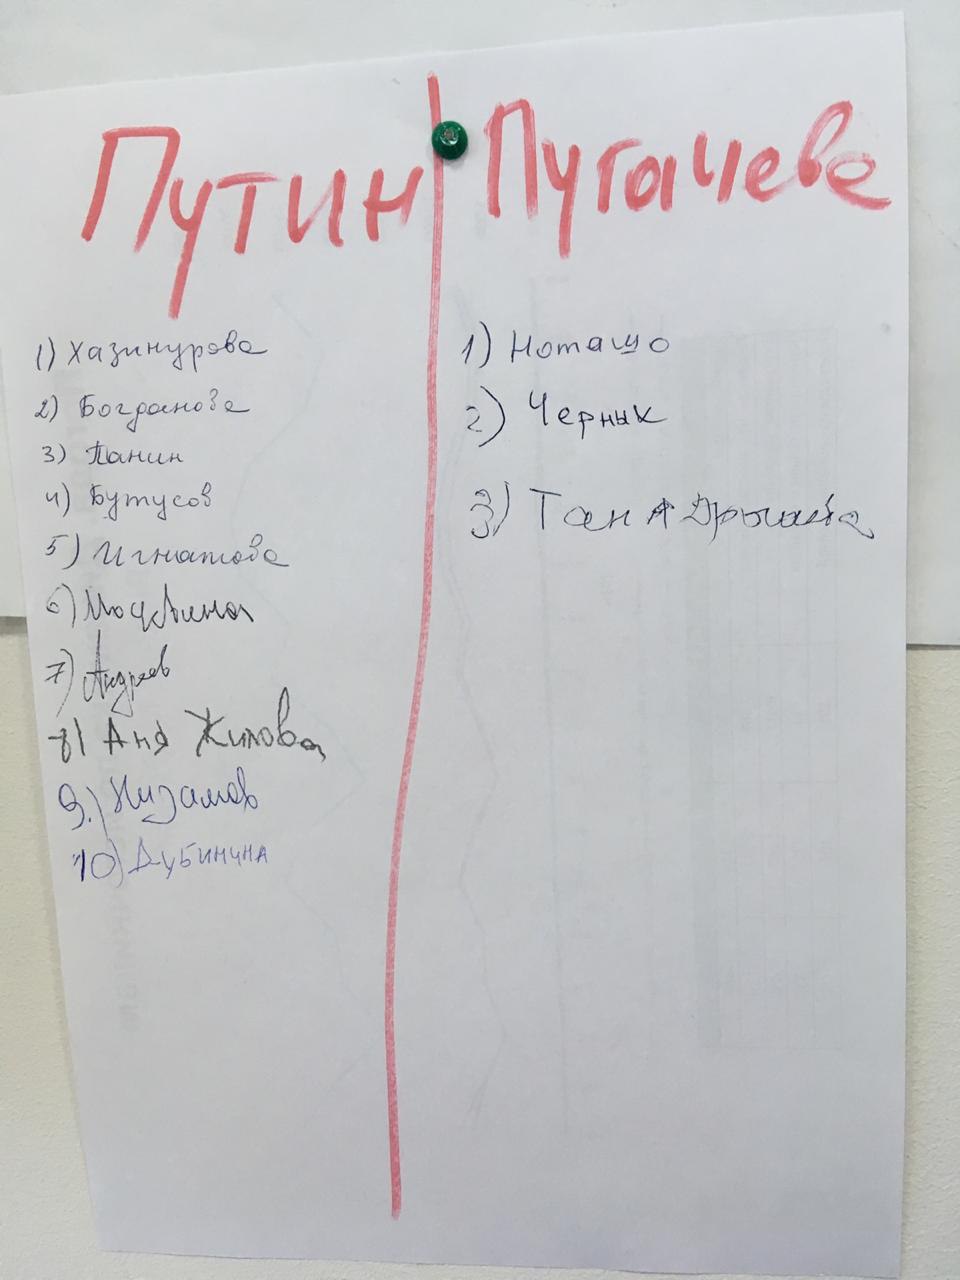 Путин Пугачева
1) Хазинурова
2) Богданова
3) Панин
4) Бутусов
5) Игнатова
6) Москвина
7) Андреев
8) Аня Жилова
9.) Низамов
10) Дубинина
1) Наташа
2) Черных
3) Таня